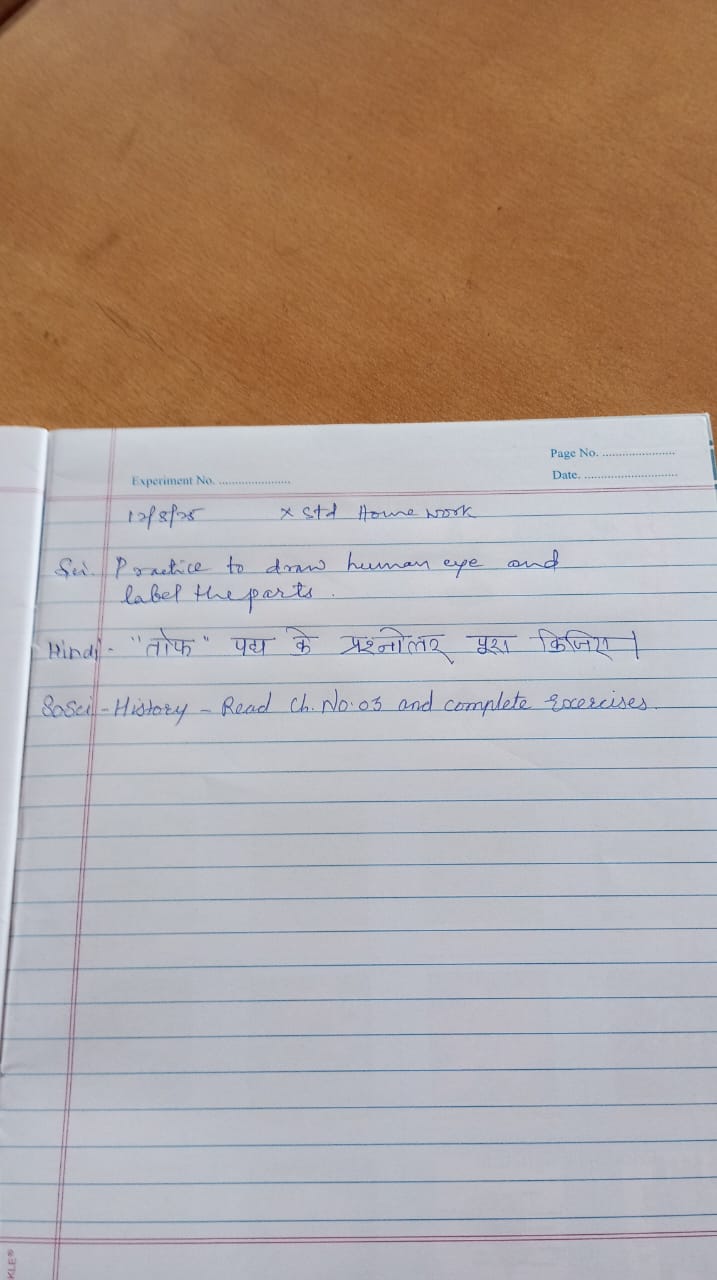 Page No. ........................
Experiment No. ........................
Date. ..............................
12/8/25 X std Home work
Sci. Practice to draw human eye and
label the parts.
Hindi - "तोफ" पद्य के प्रश्नोत्तर पूरा किजिए।
SoSci - History - Read Ch. No. 03 and complete Exercises.